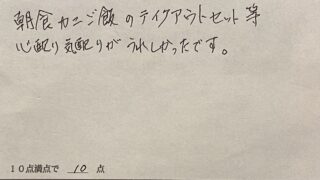 朝食カニご飯のテイクアウトセット等
心配り気配りがうれしかったです。
10点満点で 10 点